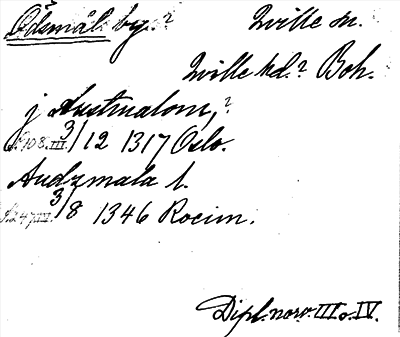 Ödsmål. by.? Tville sn.
Tville hd.? Boh.
j Austmalom,?
S. 108. III. 3/12 1317 Oslo.
Audzmala l.
S. 247. IV. 3/8 1346 Rocim.
Dipl. norv. III o. IV.